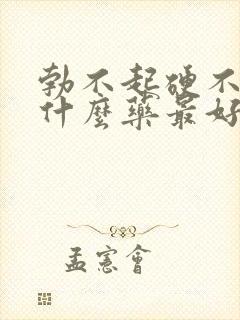 勃不起硬不
什麼藥最好
孟憲會